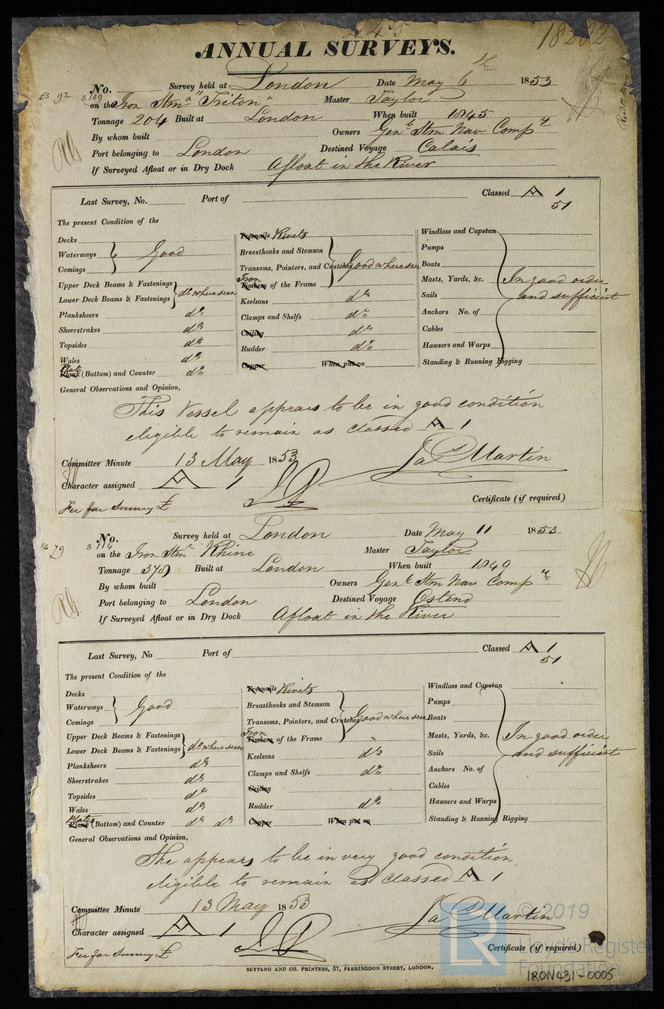 18232
ANNUAL SURVEYS.
No. Survey held at London Date May 6th 1853
on the Iron Stmr "Triton" Master Taylor
Tonnage 204 Built at London When built 1845
By whom built Owners Genl Stm Nav Compy
Port belonging to London Destined Voyage Calais
If Surveyed Afloat or in Dry Dock Afloat in the River
Last Survey, No. Port of Classed A 1
51
The present Condition of the
Decks
Waterways } Good
Comings
Upper Deck Beams & Fastenings
Lower Deck Beams & Fastenings } do where seen
Planksheers do
Sheerstrakes do
Topsides do
Wales do
Plate Plank (Bottom) and Counter do
Treenails Rivets
Breasthooks and Stemson
Transoms, Pointers, and Crutches } Good where seen
Iron Timbers of the Frame
Keelsons do
Clamps and Shelfs do
Ceiling do
Rudder do
Copper When put on
Windlass and Capstan
Pumps
Boats
Masts, Yards, &c. } In good order
Sails and sufficient
Anchors No. of
Cables
Hawsers and Warps
Standing & Running Rigging
General Observations and Opinion,
This Vessel appears to be in good condition
eligible to remain as classed A 1
Committee Minute 13 May 1853
Character assigned A 1
Jas Martin
Fee for Survey £ Certificate (if required)
No. Survey held at London Date May 11 1853
on the Iron Stmr Rhine Master Taylor
Tonnage Built at London When built 1849
By whom built Owners Genl Stm Nav Compy
Port belonging to London Destined Voyage Ostend
If Surveyed Afloat or in Dry Dock Afloat in the River
Last Survey, No. Port of Classed A 1
51
The present Condition of the
Decks
Waterways } Good
Comings
Upper Deck Beams & Fastenings
Lower Deck Beams & Fastenings } do where seen
Planksheers do
Sheerstrakes do
Topsides do
Wales do
Plates Plank (Bottom) and Counter do do
Treenails Rivets
Breasthooks and Stemson
Transoms, Pointers, and Crutches } Good where seen
Iron Timbers of the Frame
Keelsons do
Clamps and Shelfs do
Ceiling
Rudder do
Copper When put on
Windlass and Capstan
Pumps
Boats
Masts, Yards, &c. } In good order
Sails and sufficient
Anchors No. of
Cables
Hawsers and Warps
Standing & Running Rigging
General Observations and Opinion,
She appears to be in very good condition,
eligible to remain as classed A 1
Committee Minute 13 May 1853
Character assigned A 1
Jas Martin
Fee for Survey £ Certificate (if required)
SEYFANG AND CO. PRINTERS, 57, FARRINGDON STREET, LONDON.
LR © 2019
Lloyd's Register
Foundation
IRON431-0005